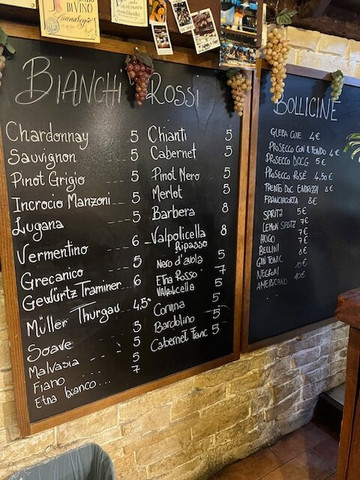 BIANCHI
Chardonnay 5
Sauvignon 5
Pinot Grigio 5
Incrocio Manzoni 5
Lugana 5
Vermentino 6
Grecanico 5
Gewürtz Traminer 6
Müller Thurgau 4,5
Soave 5
Malvasia 5
Fiano 5
Etna bianco... 7
ROSSI
Chianti 5
Cabernet 5
Pinot Nero 5
Merlot 5
Barbera 8
Valpolicella 8
Ripasso
Nero d'avola 5
Etna Rosso 7
Valpolicella 5
Corvina 5
Bardolino 5
Cabernet Franc 5
BOLLICINE
4€
PROSECCO 4€
PROSECCO DOCG 5€
PROSECCO ROSÈ 4.50€
TRENTO DOC 8€
FRANCIACORTA 8€
SPRITZ 5€
LEMON SPRITZ 7€
HUGO 7€
BELLINI 8€
GIN TONIC
NEGRONI 10€
AMERICANO 10€